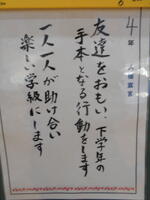 4年 人権宣言
友達をおもい、下学年の
手本となる行動をします
一人一人が助け合い
楽しい学級にします